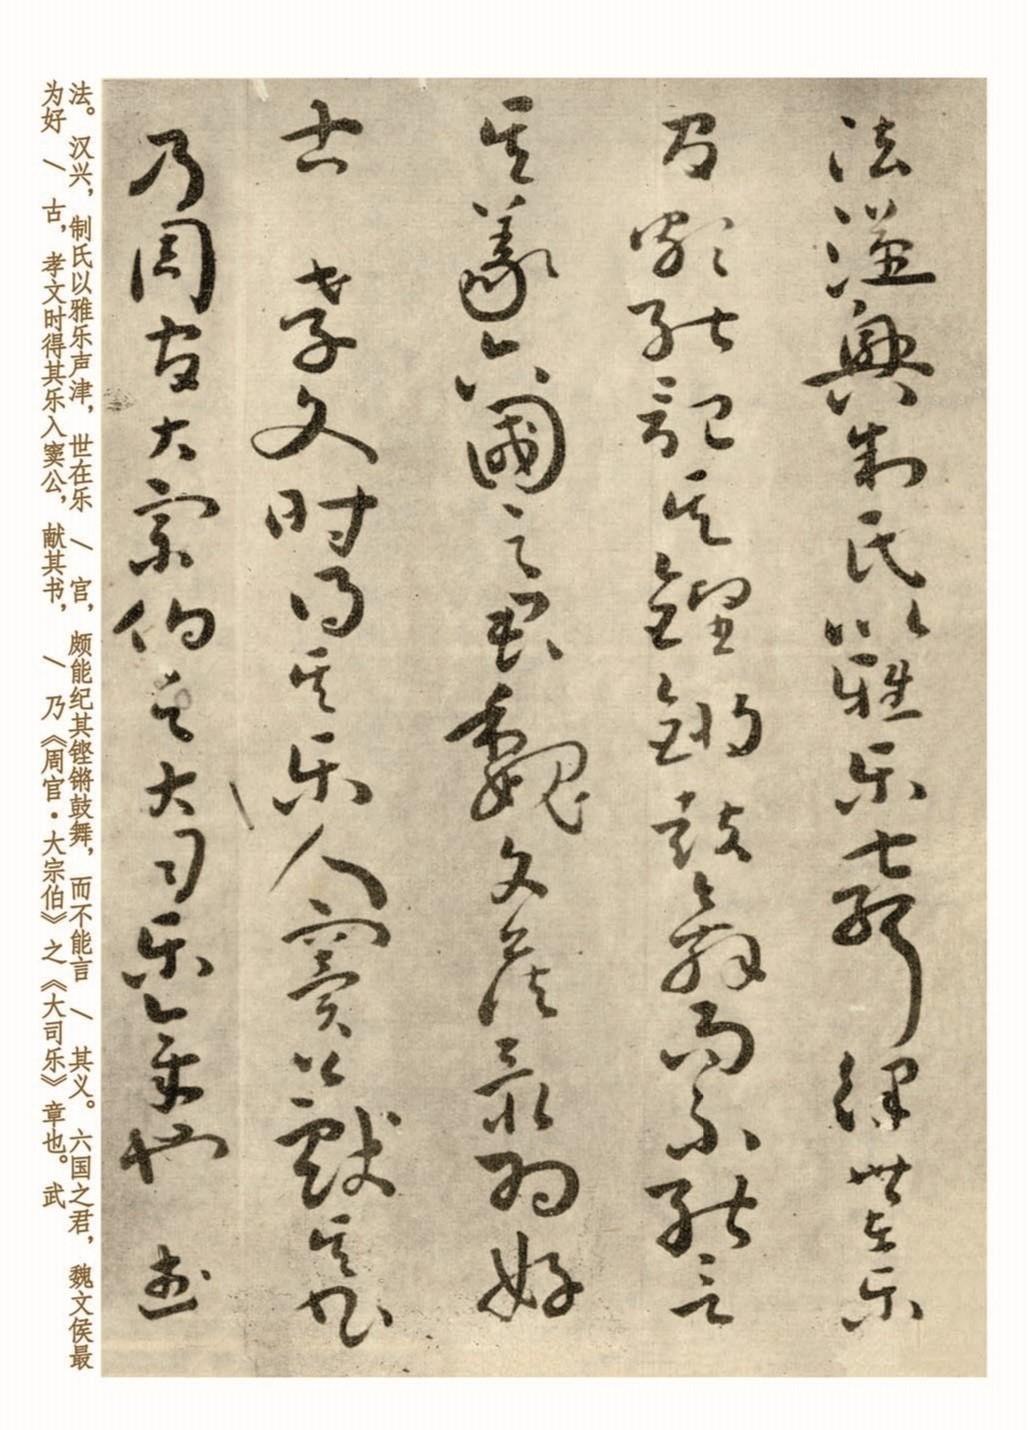 法漢興制氏以雅樂聲律世在樂
官頗能記其鏗鏘鼓舞而不能言
其義六國之君魏文侯最為好
古孝文時得其樂人竇公獻其書
乃周官大宗伯之大司樂章也武
法。汉兴，制氏以雅乐声津，世在乐 / 官，颇能纪其铿锵鼓舞，而不能言 / 其义。六国之君，魏文侯最
为好 / 古，孝文时得其乐入窦公，献其书， / 乃《周官·大宗伯》之《大司乐》章也。武